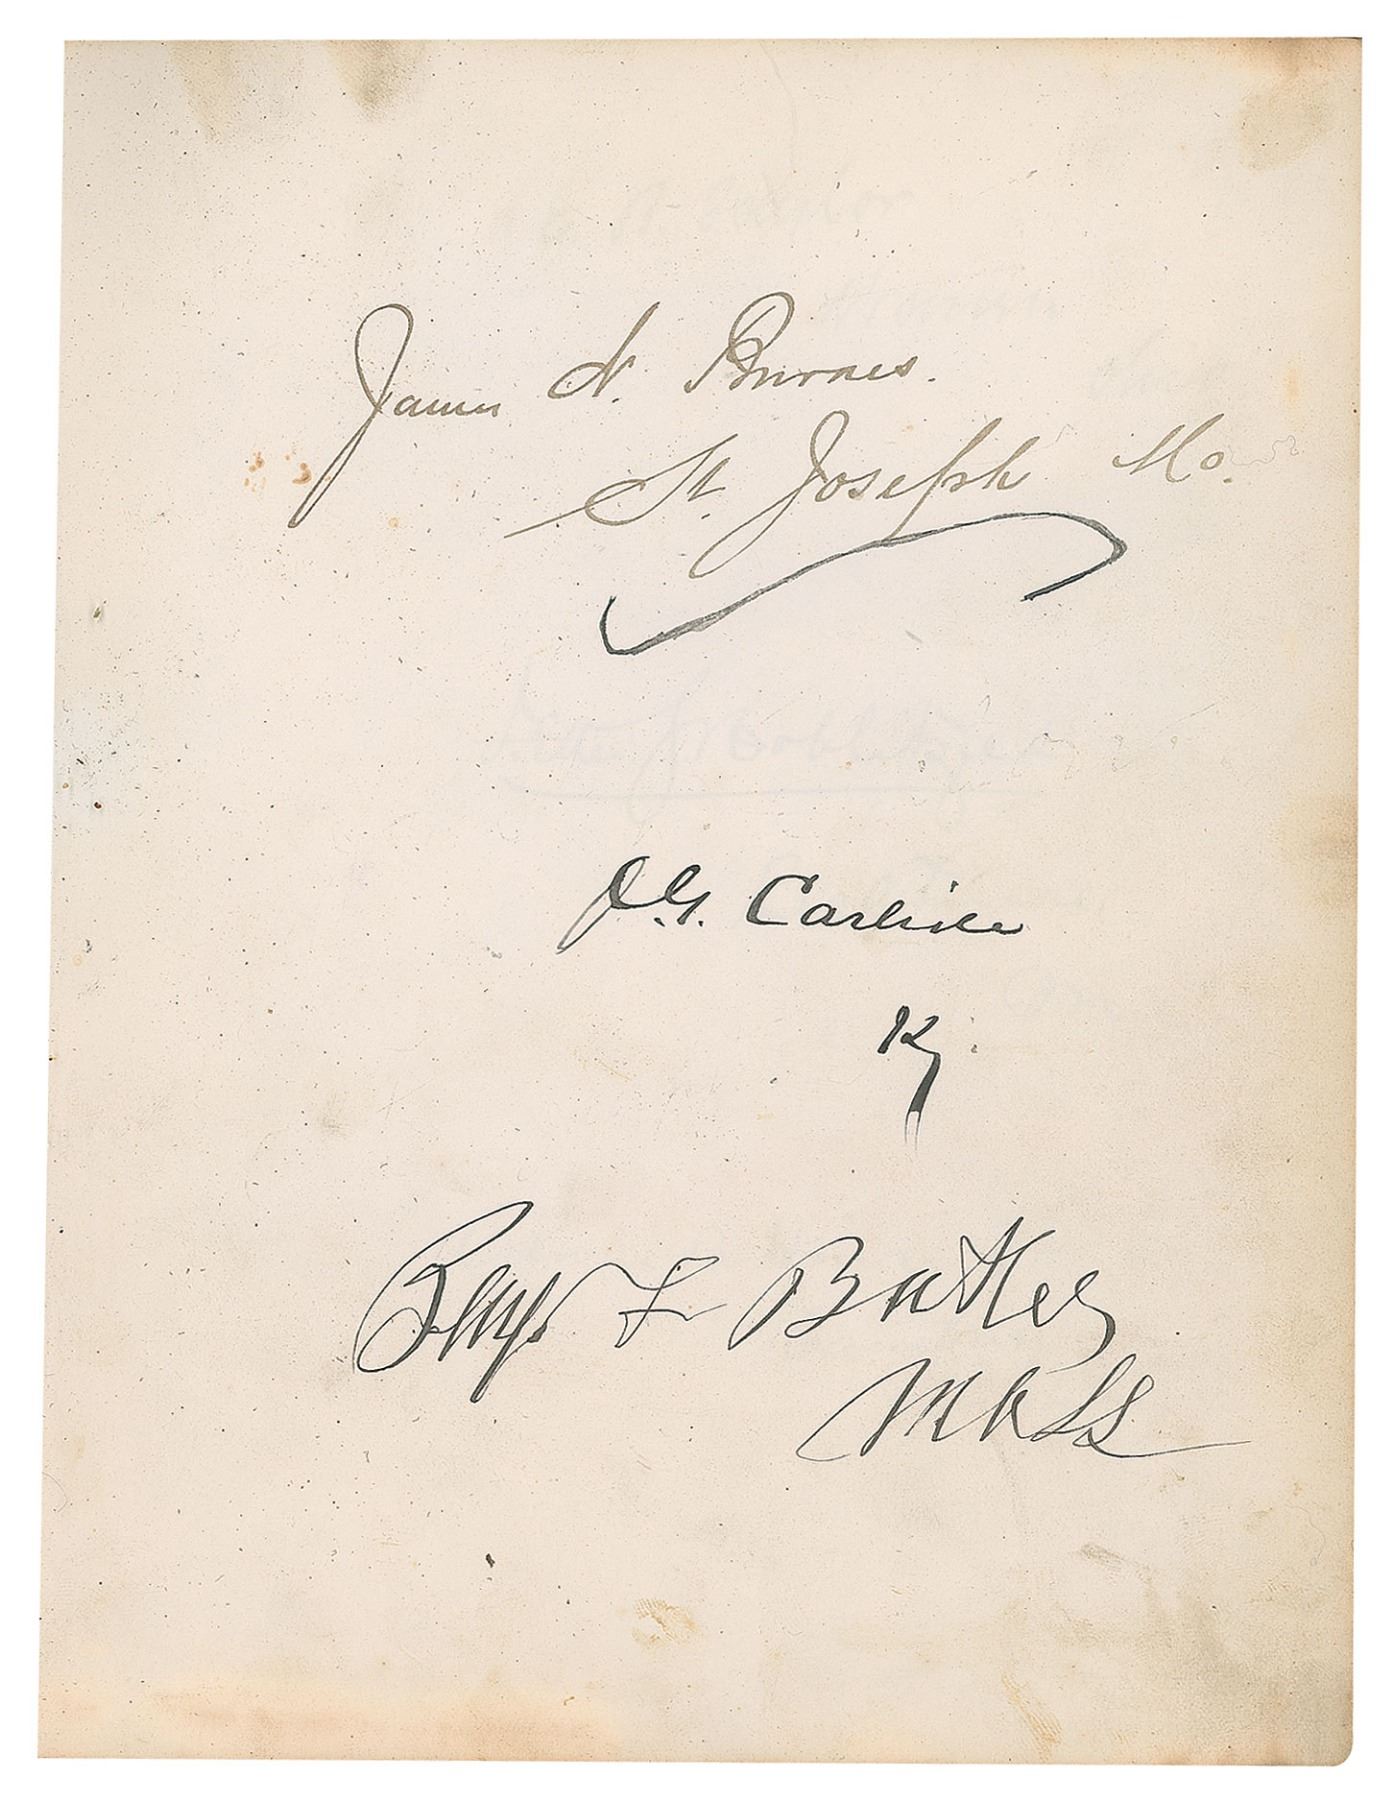 James N. Burnes.
St. Joseph Mo.
J.G. Carlisle
Ky.
Benj. F Butler
Mass